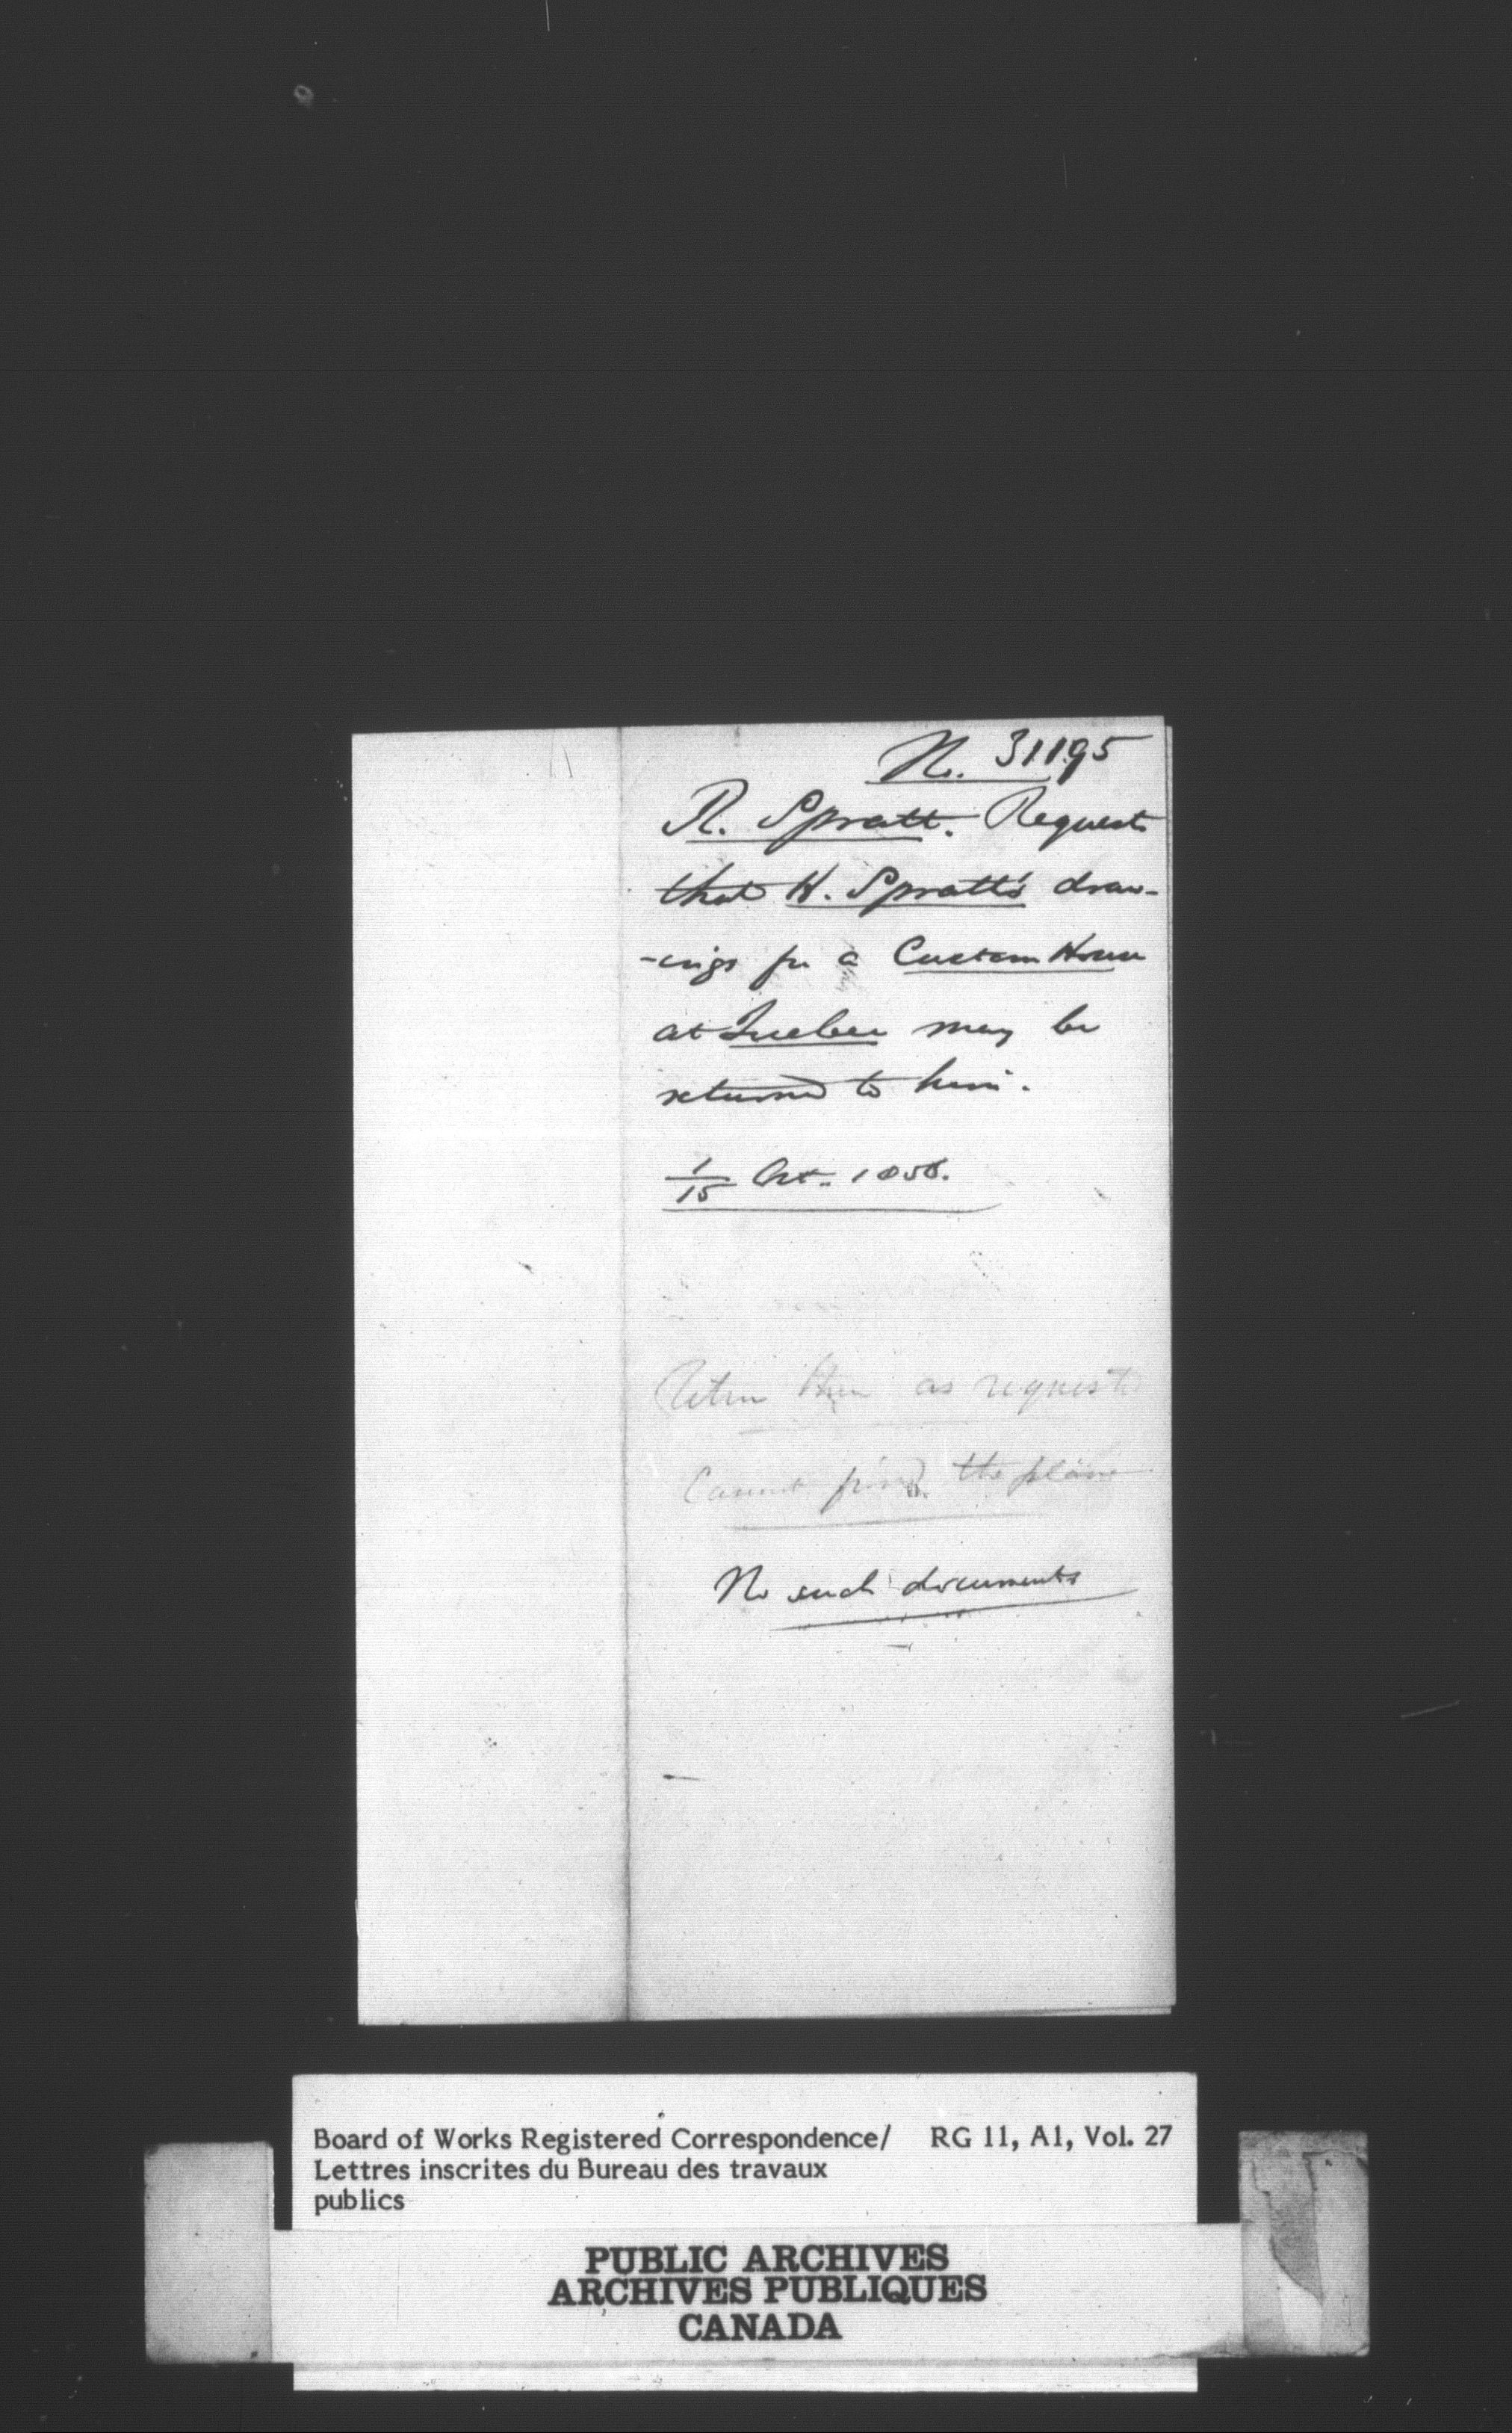 No. 31195
R. Spratt. Requests
that H. Spratt's draw-
-ings for a Custom House
at Quebec may be
returned to him.
1/15 Oct. 1856.
Return them as requested
Cannot find the plans
No such documents
Board of Works Registered Correspondence/ RG 11, A1, Vol. 27
Lettres inscrites du Bureau des travaux
publics
PUBLIC ARCHIVES
ARCHIVES PUBLIQUES
CANADA